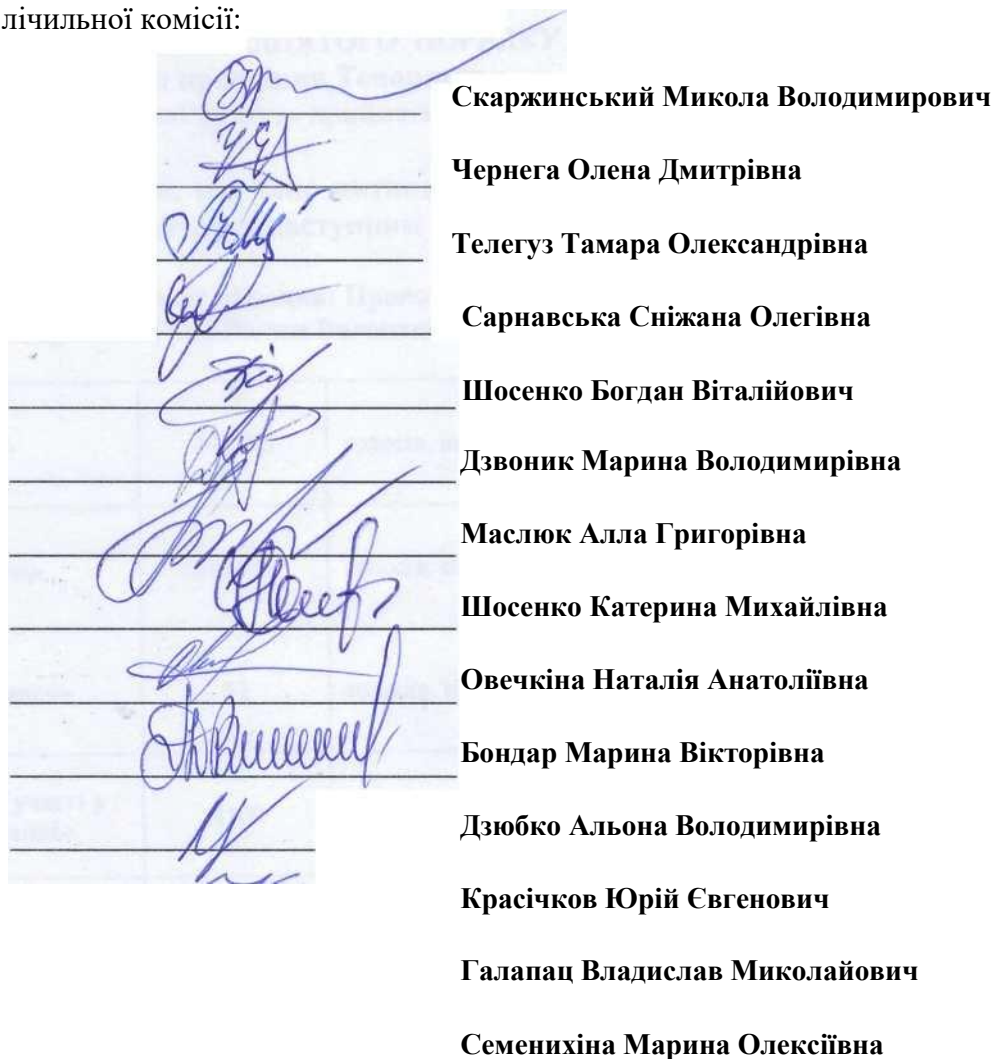 лічильної комісії:
Скаржинський Микола Володимирович
Чернега Олена Дмитрівна
Телегуз Тамара Олександрівна
Сарнавська Сніжана Олегівна
Шосенко Богдан Віталійович
Дзвоник Марина Володимирівна
Маслюк Алла Григорівна
Шосенко Катерина Михайлівна
Овечкіна Наталія Анатоліївна
Бондар Марина Вікторівна
Дзюбко Альона Володимирівна
Красічков Юрій Євгенович
Галапац Владислав Миколайович
Семенихіна Марина Олексіївна